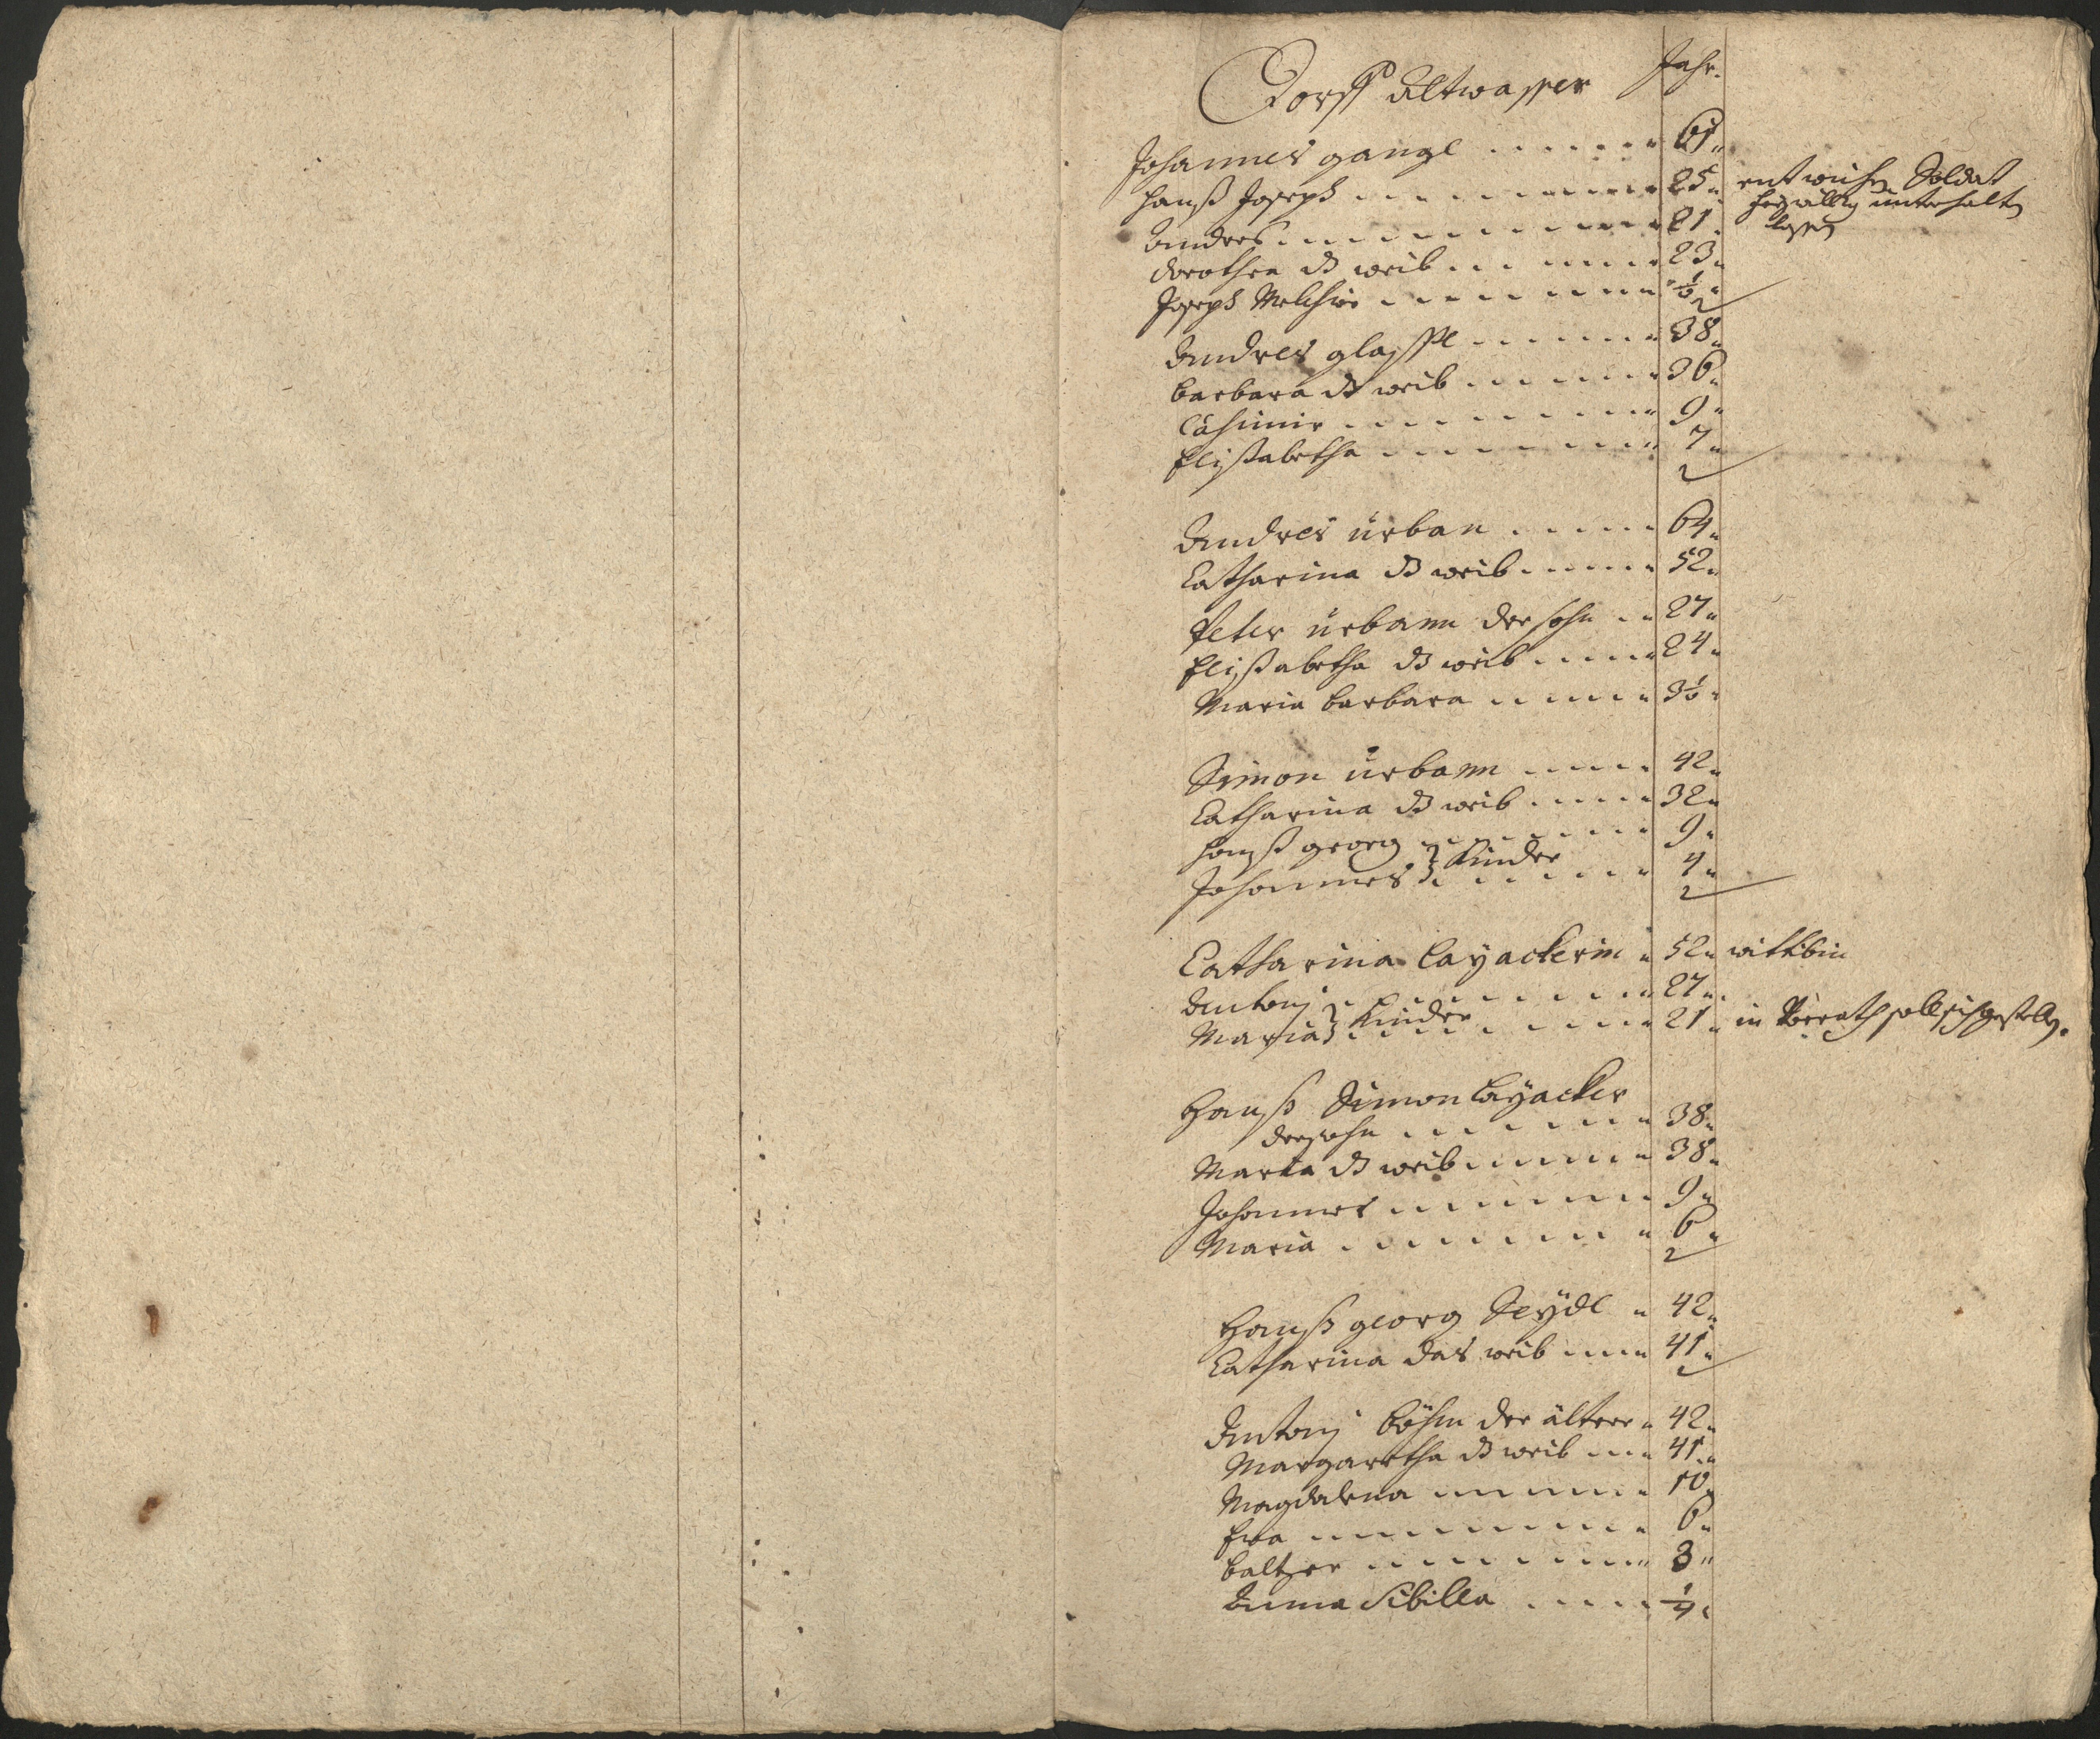 Dorff Altwasser Jahr.
Johannes gangl 61
Hanß Joseph 25 entwichen Soldat
unterhalten
lassen
Andres 21
Dorothea dz weib 23
Joseph Melchior ½
Andres glassl 38
Barbara dz weib 36
Casimir 9
Elisabetha 7
Andres Urban 64
Catharina dz weib 52
Peter Urbann der sohn 27
Elisabetha dz weib 24
Maria Barbara 3½
Simon Urbann 42
Catharina dz weib 32
Hanß georg 9
Kinder
Johannes 4
Catharina Cayackerin 52 wittbin
Antonj 27
Kinder
Maria 21 in
Hanß Simon Cayacker
der sohn 38
Marta dz weib 38
Johannes 9
Maria 6
Hanß georg Seydl 42
Catharina das weib 41
Antonj Böhm der ältere 42
Margaretha dz weib 41
Magdalena 10
Eva 6
Baltzer 3
Anna Sibilla ¼